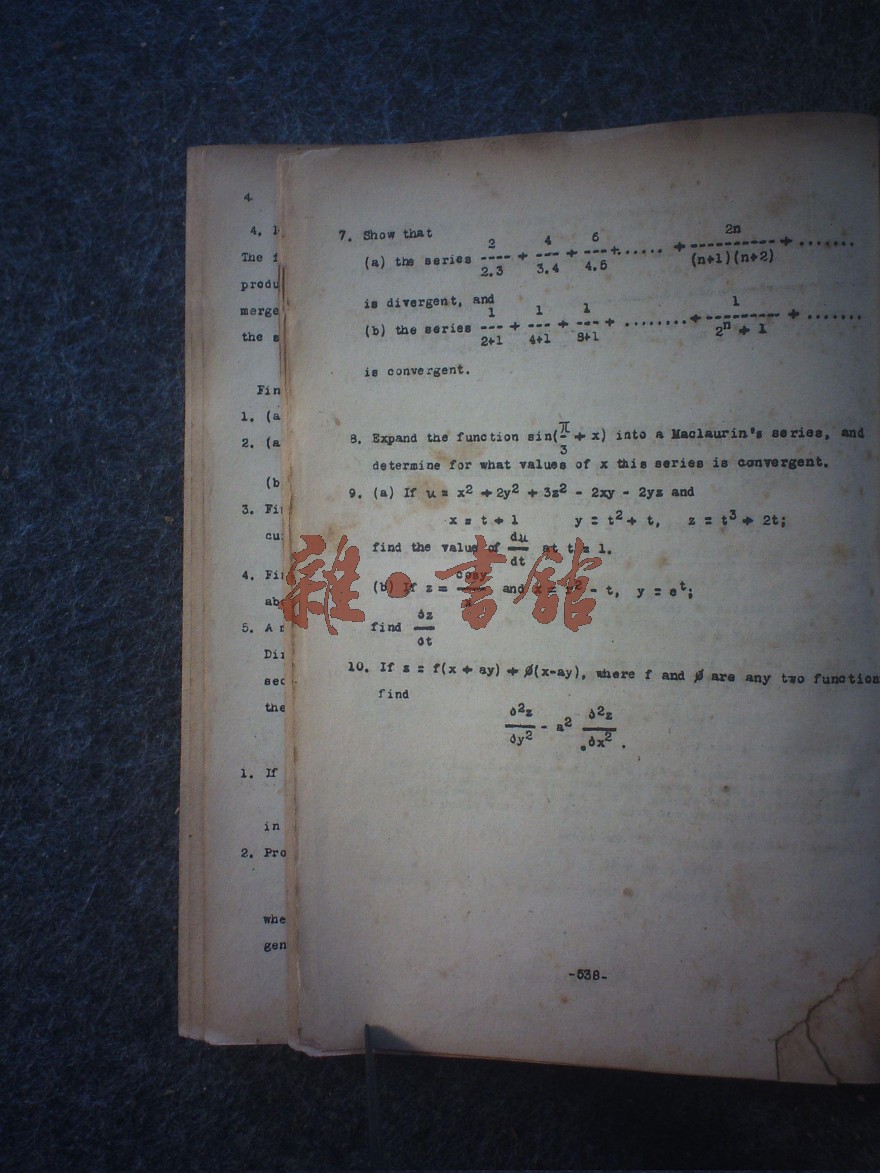 4
4.
The
produ
merge
the s
Fin
1. (a
2. (a
(b
3. Fi
cu
4. Fi
ab
5. A
Di
sec
the
1. If
in
2. Pro
whe
gen
7. Show that
(a) the series 2/2.3 + 4/3.4 + 6/4.5 +...... + 2n/(n+1)(n+2) + .......
is divergent, and
(b) the series 1/2+1 + 1/4+1 + 1/8+1 + ........+ 1/2ⁿ + 1 + .......
is convergent.
8. Expand the function sin(π/3 + x) into a Maclaurin's series, and
determine for what values of x this series is convergent.
9. (a) If u = x² + 2y² + 3z² - 2xy - 2yz and
x = t + 1 y = t² + t, z = t³ + 2t;
find the value of du/dt at t = 1.
(b) If z = cosy/x and x = r² - t, y = eᵗ;
find ∂z/∂t
10. If z = f(x + ay) + ø(x-ay), where f and ø are any two function
find
∂²z/∂y² - a² ∂²z/∂x².
-538-
雜·書館